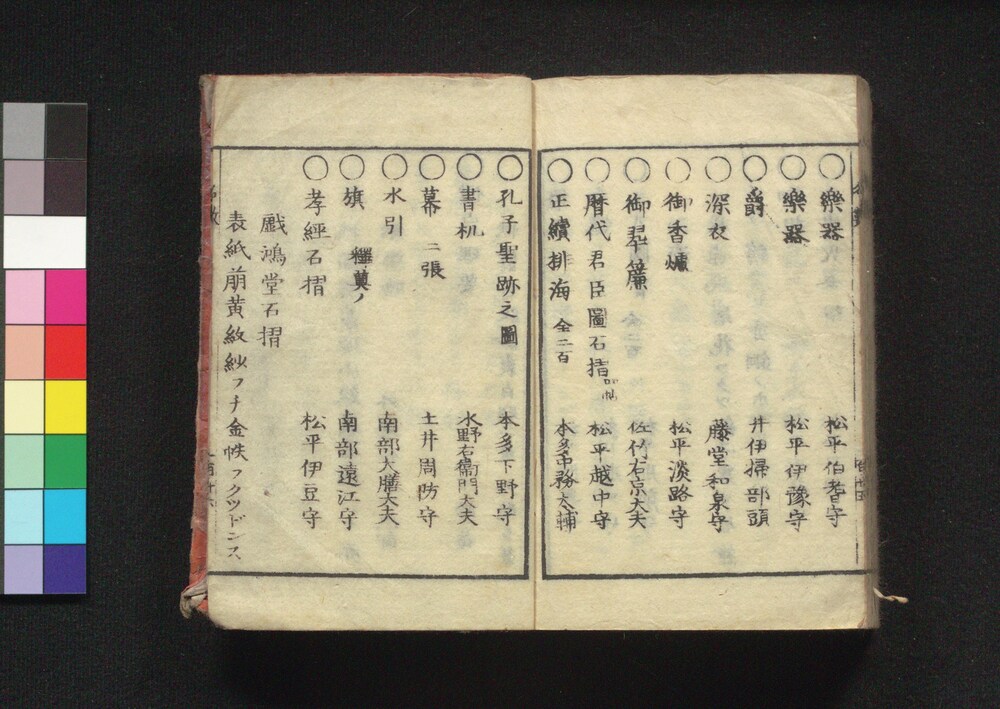 ○樂器 松平伯耆守
○樂器 松平伊豫守
○爵 井伊掃部頭
○深衣 藤堂和泉守
○御香爐 松平淡路守
○御翠簾 佐竹右京大夫
○暦代君臣圖石摺 松平越中守
○正續排海 全二百 本多中務大輔
○孔子聖跡之圖 本多下野守
○書机 水野右衞門大夫
○幕 二張 土井周防守
○水引 南部大膳大夫
○旗 釋奠ノ 南部遠江守
○孝經石摺 松平伊豆守
戲鴻堂石摺
表紙萠黄紋紗フチ金帙フクツドンス